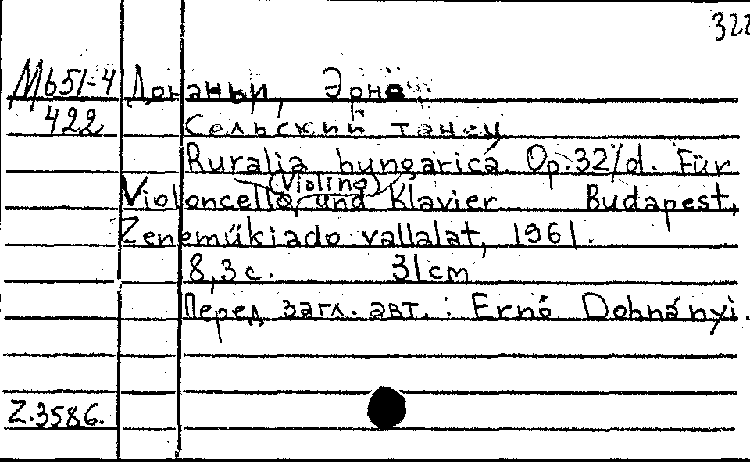 322
М651-4 Донаньи, Эрнё
422 Сельский танец
Ruralia hungarica Op.32/d. Für
(Violine)
Violoncello, und Klavier Budapest,
Zeneműkiado vallalat, 1961.
8,3 с. 31cm
Перед загл. авт.: Ernő Dohnányi.
Z.3586.